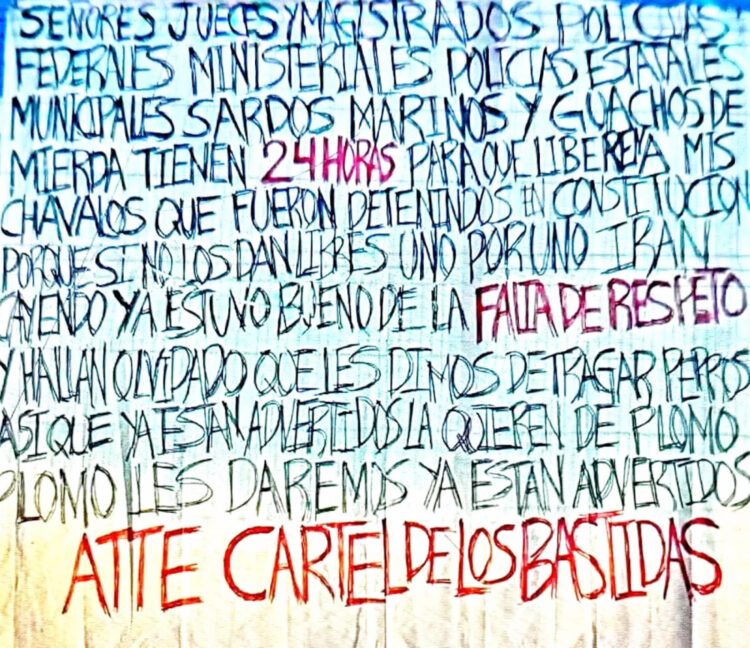 SEÑORES JUECES Y MAGISTRADOS POLICIAS
FEDERALES MINISTERIALES POLICIAS ESTATALES
MUNICIPALES SARDOS MARINOS Y GUACHOS DE
MIERDA TIENEN 24 HORAS PARA QUE LIBEREN A MIS
CHAVALOS QUE FUERON DETENINDOS EN CONSTITUCION
PORQUE SI NO LOS DAN LIBRES UNO POR UNO IRAN
CAYENDO YA ESTUVO BUENO DE LA FALTA DE RESPETO
Y HALLAN OLVIDADO QUE LES DIMOS DE TRAGAR PERROS
ASI QUE YA ESTAN ADVERTIDOS LA QUIEREN DE PLOMO
PLOMO LES DAREMOS YA ESTAN ADVERTIDOS
ATTE CARTEL DE LOS BASTIDAS